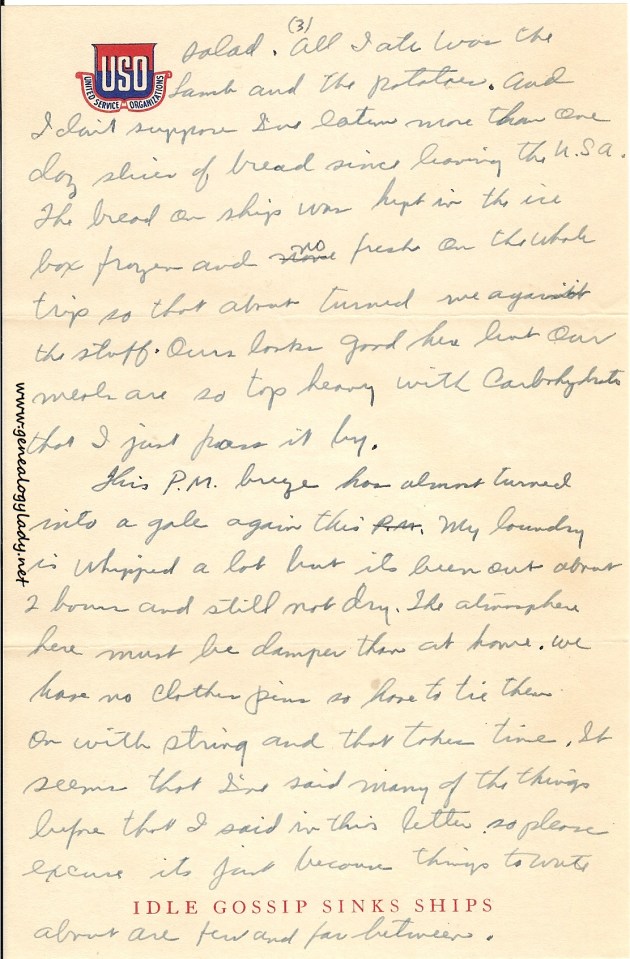 (3)
USO
UNITED SERVICE ORGANIZATIONS
salad. All I ate was the
lamb and the potatoes. And
I don't suppose I've eaten more than one
doz slices of bread since leaving the U.S.A.
The bread on ship was kept in the ice
box frozen and no fresh on the whole
trip so that about turned me against
the stuff. Ours looks good here but our
meals are so top heavy with Carbohydrates
that I just pass it by.
This P.M. breeze has almost turned
into a gale again this P.M. My laundry
is whipped a lot but its been out about
2 hours and still not dry. The atmosphere
here must be damper than at home. We
have no clothes pins so have to tie them
on with string and that takes time. It
seems that I've said many of the things
before that I said in this letter so please
excuse its just because things to write
IDLE GOSSIP SINKS SHIPS
about are few and far between.
www.genealogylady.net